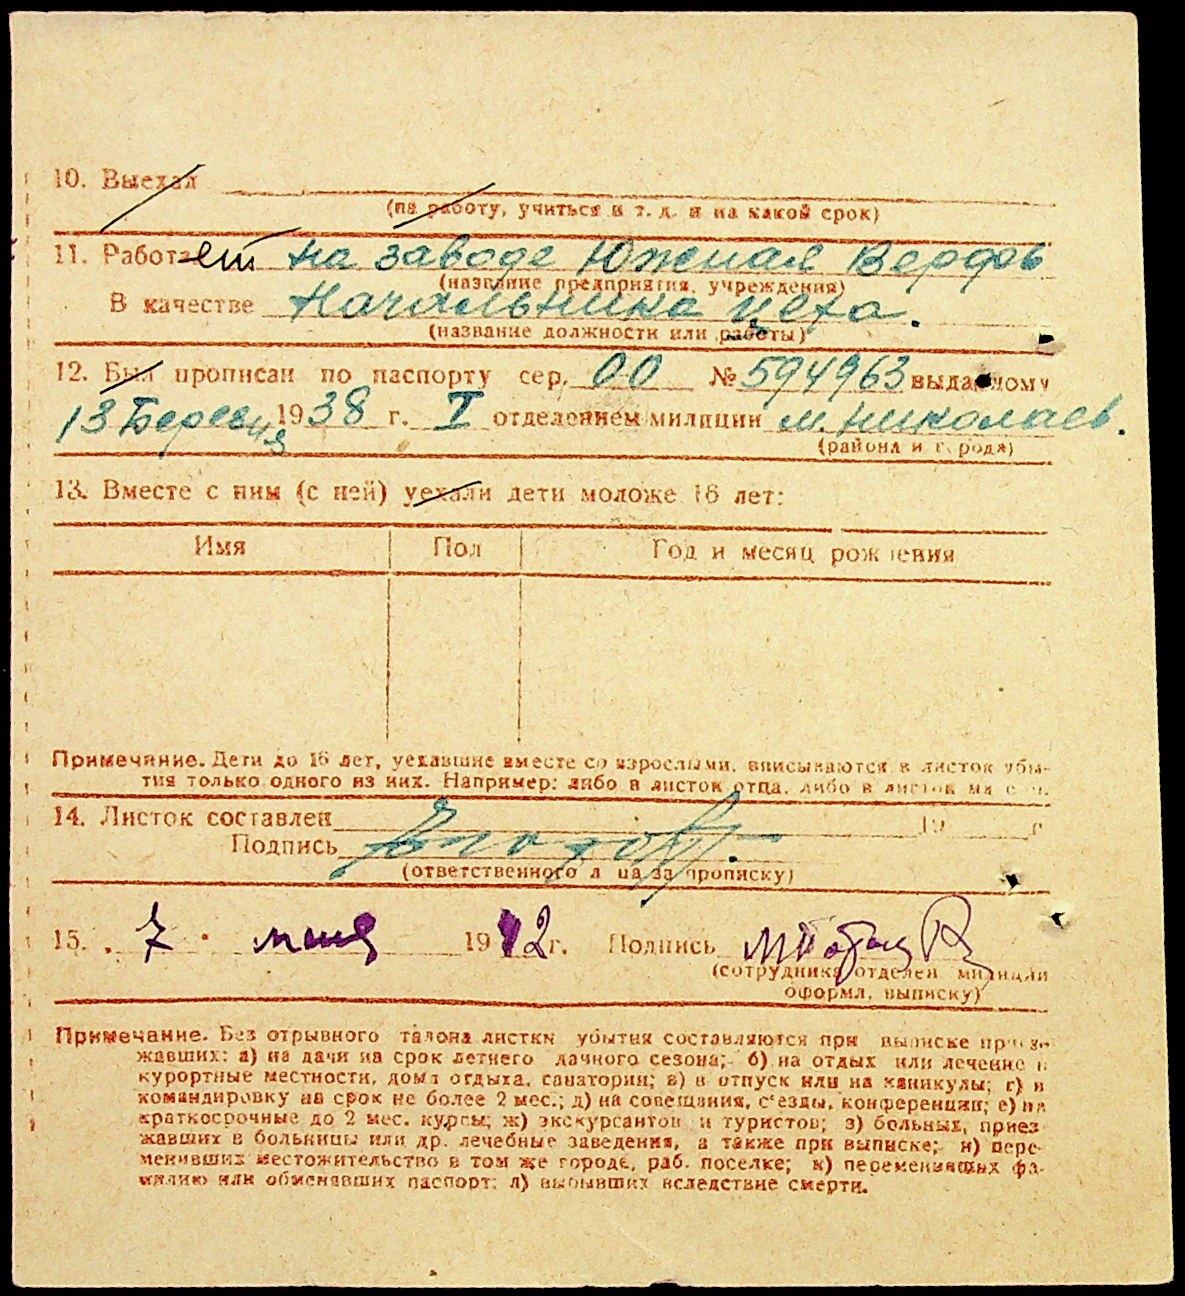 10. Выехал
(на работу, учиться и т. д. и на какой срок)
11. Работает на заводе Южная Верфь
(название предприятия, учреждения)
В качестве Начальника цеха.
(название должности или работы)
12. Был прописан по паспорту сер. 00 № 594963 выданному
13 Березня 1938 г. I отделением милиции м. Николаев.
(района и города)
13. Вместе с ним (с ней) уехали дети моложе 16 лет:
Имя Пол Год и месяц рождения
Примечание. Дети до 16 лет, уехавшие вместе со взрослыми, вписываются в листок убы-
тия только одного из них. Например: либо в листок отца, либо в листок матери.
14. Листок составлен 19 г.
Подпись
(ответственного лица за прописку)
15. 7 мая 1942 г. Подпись
(сотрудника отделен милиции
оформл. выписку)
Примечание. Без отрывного талона листки убытия составляются при выписке приез-
жавших: а) на дачи на срок летнего дачного сезона; б) на отдых или лечение в
курортные местности, дома отдыха, санатории; в) в отпуск или на каникулы; г) в
командировку на срок не более 2 мес.; д) на совещания, с'езды, конференции; е) на
краткосрочные до 2 мес. курсы; ж) экскурсантов и туристов; з) больных, приез-
жавших в больницы или др. лечебные заведения, а также при выписке; и) пере-
менивших местожительство в том же городе, раб. поселке; к) переменивших фа-
милию или обменявших паспорт; л) выбывших вследствие смерти.